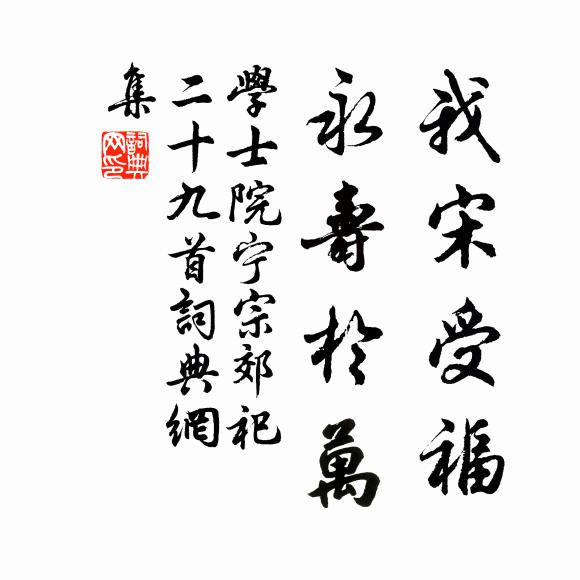 我宋受福
永壽於萬
學士院宁宗郊祀
二十九首詞典網
集
詞典網印